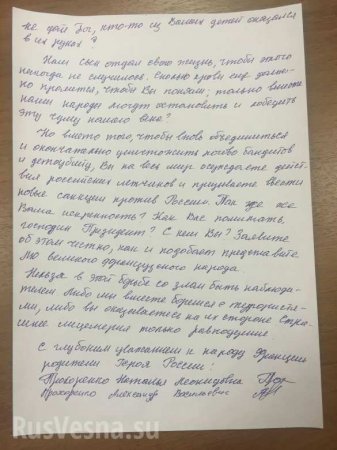 не дай Бог, кто-то из Ваших детей оказался
в их руках?
Наш сын отдал свою жизнь, чтобы этого
никогда не случилось. Сколько крови еще должно
пролиться, чтобы Вы поняли: только вместе
наши народы могут остановить и победить
эту чуму нашего века?
Но вместо того, чтобы вновь объединиться
и окончательно уничтожить логово бандитов
и детоубийц, Вы на весь мир осуждаете дейст-
вия российских летчиков и призываете ввести
новые санкции против России. Так где же
Ваша искренность? Как Вас понимать,
господин Президент? С кем Вы? Заявите
об этом честно, как и подобает представите-
лю великого французского народа.
Нельзя в этой борьбе со злом быть наблюда-
телем. Либо мы вместе боремся с террориста-
ми, либо вы оказываетесь на их стороне. Страш-
нее лицемерия только равнодушие.
С глубоким уважением к народу Франции
родители Героя России:
Прохоренко Наталья Леонидовна
Прохоренко Александр Васильевич
RusVesna.su